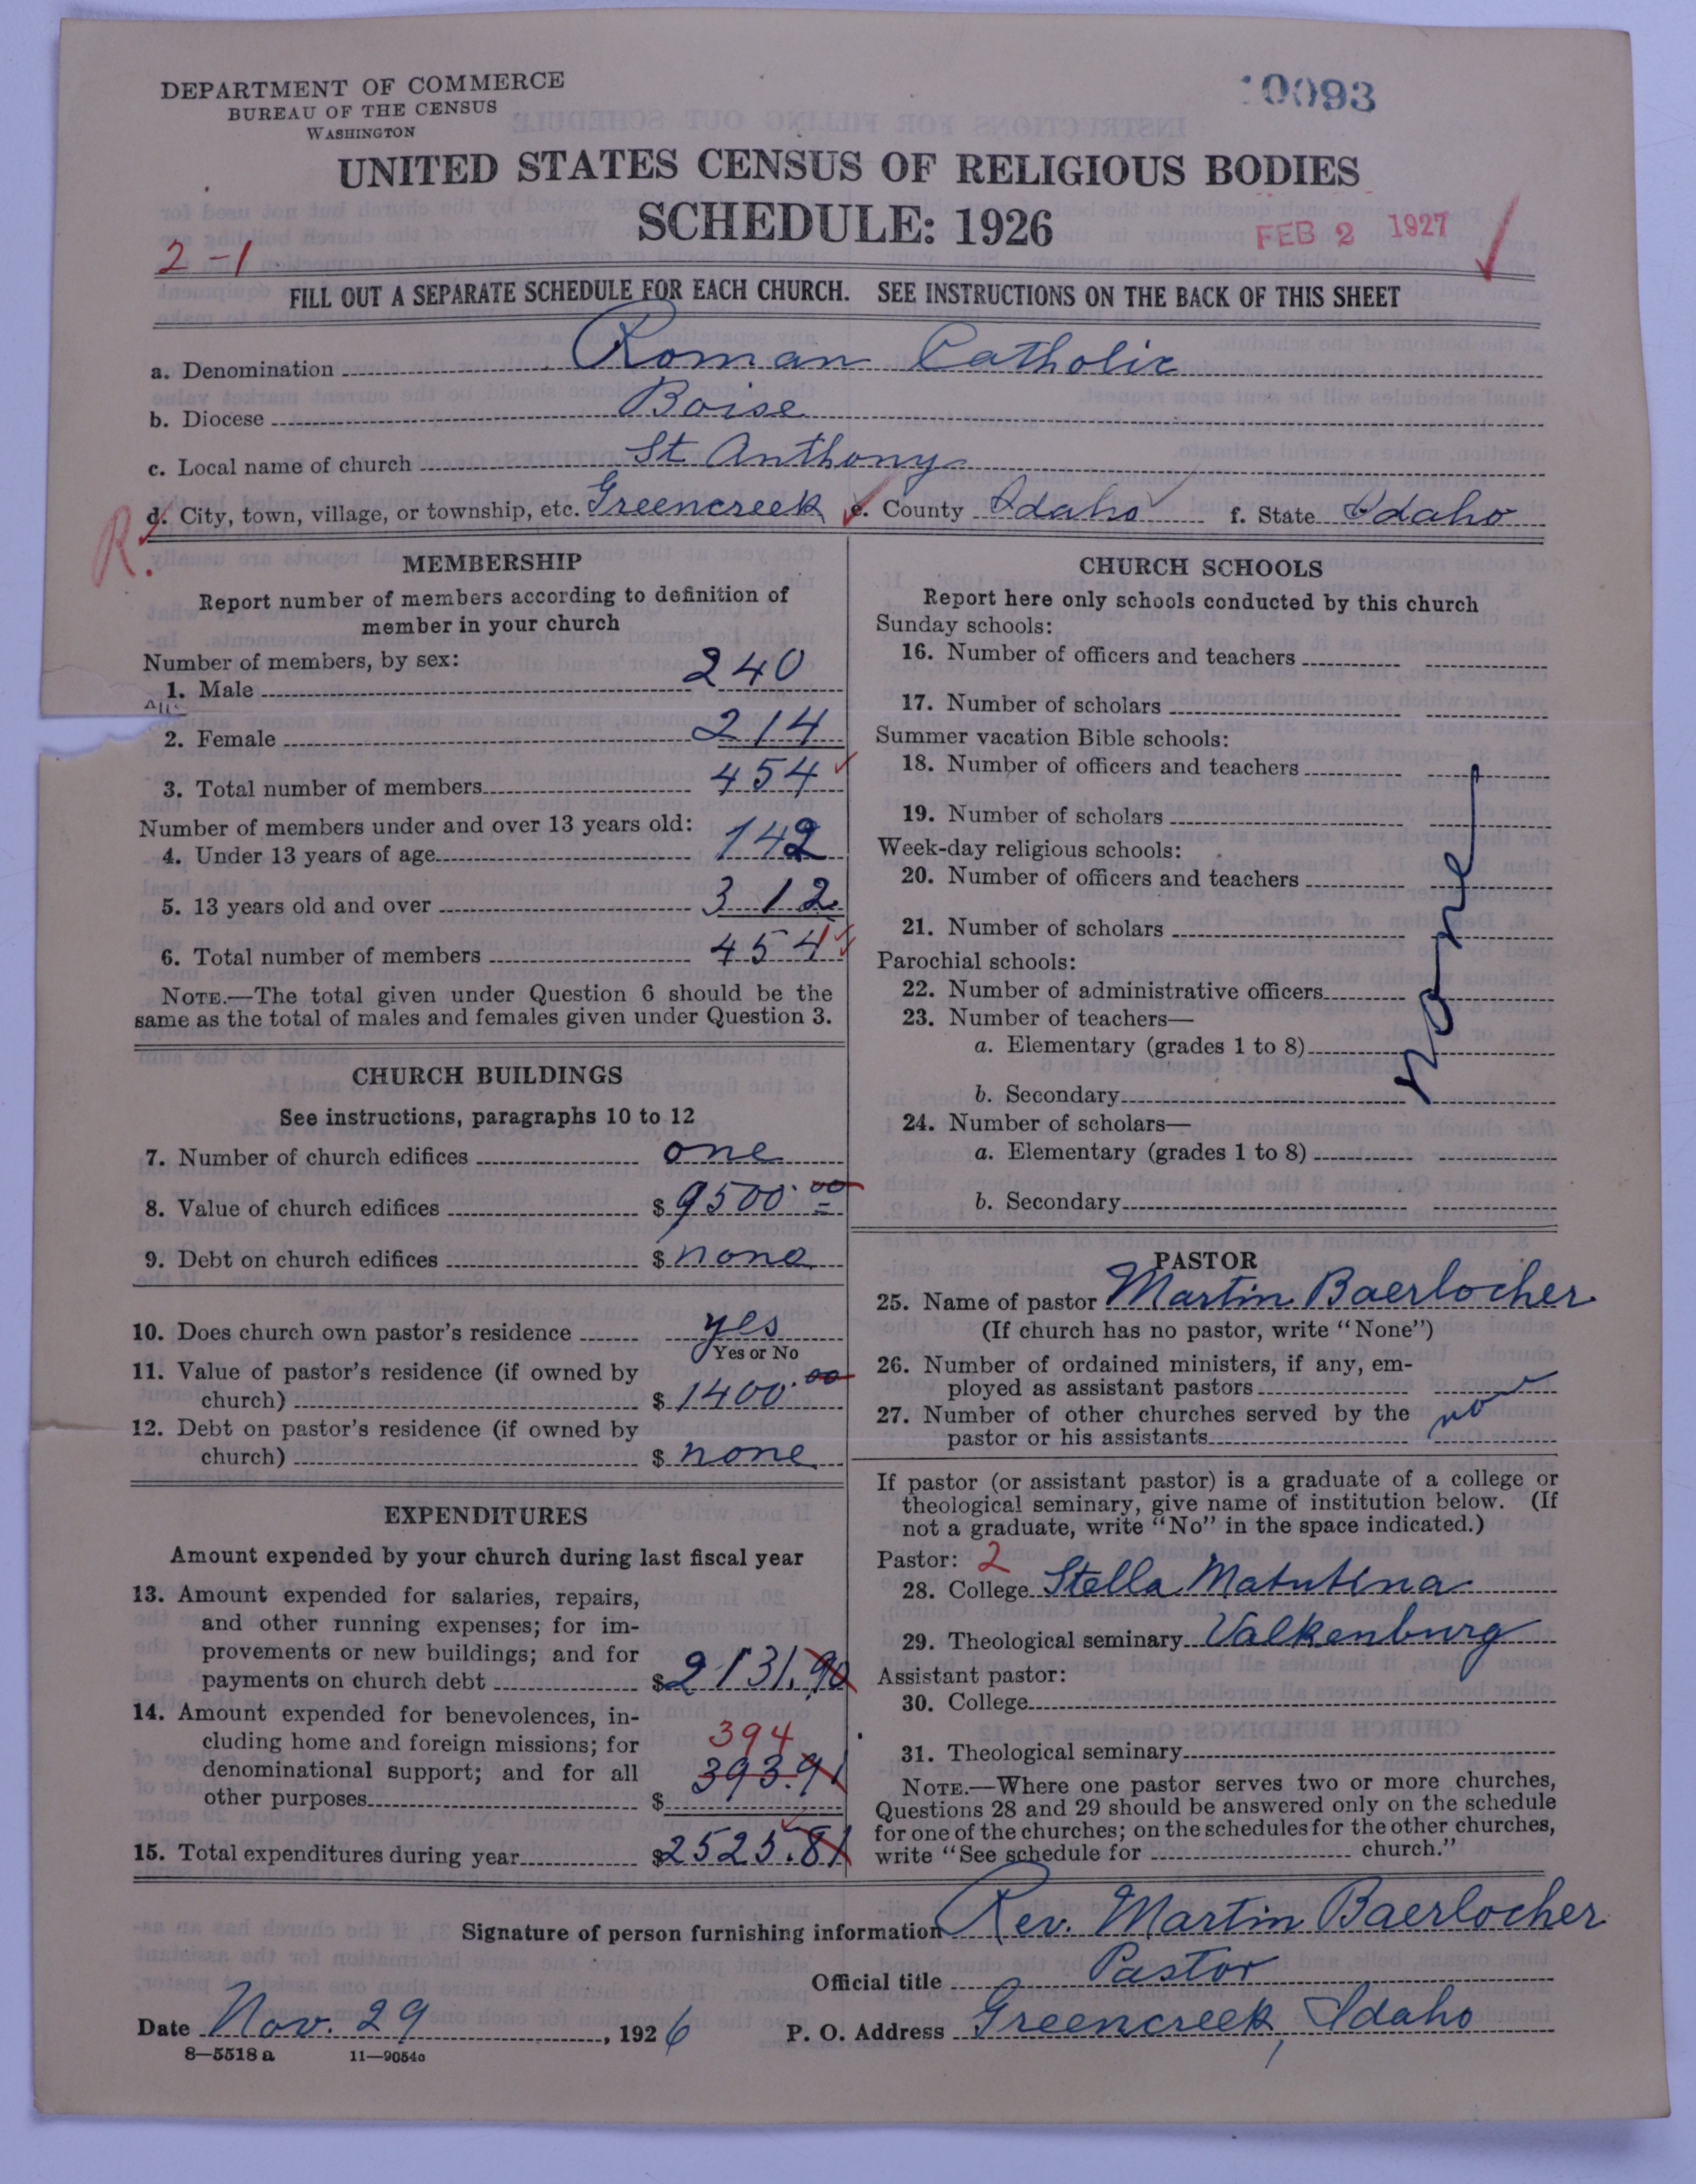 DEPARTMENT OF COMMERCE
BUREAU OF THE CENSUS
WASHINGTON
10093
UNITED STATES CENSUS OF RELIGIOUS BODIES
SCHEDULE: 1926
FEB 2 1927
2-1
FILL OUT A SEPARATE SCHEDULE FOR EACH CHURCH. SEE INSTRUCTIONS ON THE BACK OF THIS SHEET
a. Denomination Roman Catholic
b. Diocese Boise
c. Local name of church St Anthony
d. City, town, village, or township, etc. Greencreek e. County Idaho f. State Idaho
R.
MEMBERSHIP
Report number of members according to definition of
member in your church
Number of members, by sex:
1. Male 240
2. Female 214
3. Total number of members 454
Number of members under and over 13 years old:
4. Under 13 years of age 142
5. 13 years old and over 312
6. Total number of members 454
NOTE.—The total given under Question 6 should be the
same as the total of males and females given under Question 3.
CHURCH BUILDINGS
See instructions, paragraphs 10 to 12
7. Number of church edifices one
8. Value of church edifices $ 9500.00
9. Debt on church edifices $ none
10. Does church own pastor's residence yes
Yes or No
11. Value of pastor's residence (if owned by
church) $ 1400.00
12. Debt on pastor's residence (if owned by
church) $ none
EXPENDITURES
Amount expended by your church during last fiscal year
13. Amount expended for salaries, repairs,
and other running expenses; for im-
provements or new buildings; and for
payments on church debt $ 2131.90
14. Amount expended for benevolences, in-
cluding home and foreign missions; for
394
denominational support; and for all 393.91
other purposes $
15. Total expenditures during year $2525.81
CHURCH SCHOOLS
Report here only schools conducted by this church
Sunday schools:
16. Number of officers and teachers
17. Number of scholars
Summer vacation Bible schools:
18. Number of officers and teachers
19. Number of scholars
Week-day religious schools:
20. Number of officers and teachers
21. Number of scholars
Parochial schools:
22. Number of administrative officers
23. Number of teachers—
a. Elementary (grades 1 to 8)
b. Secondary
24. Number of scholars—
a. Elementary (grades 1 to 8)
b. Secondary
none
PASTOR
25. Name of pastor Martin Baerlocher
(If church has no pastor, write "None")
26. Number of ordained ministers, if any, em-
ployed as assistant pastors
27. Number of other churches served by the no
pastor or his assistants
If pastor (or assistant pastor) is a graduate of a college or
theological seminary, give name of institution below. (If
not a graduate, write "No" in the space indicated.)
Pastor: 2
28. College Stella Matutina
29. Theological seminary Valkenburg
Assistant pastor:
30. College
31. Theological seminary
NOTE.—Where one pastor serves two or more churches,
Questions 28 and 29 should be answered only on the schedule
for one of the churches; on the schedules for the other churches,
write "See schedule for church."
Signature of person furnishing information Rev. Martin Baerlocher
Official title Pastor
Date Nov. 29, 1926 P. O. Address Greencreek, Idaho
8—5518a 11—9054a